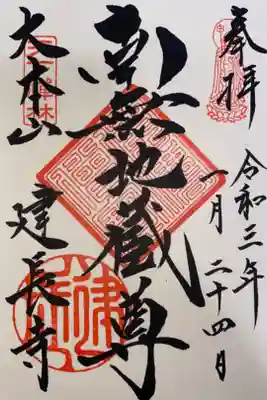 奉拝
令和三年
一月二十四日
南無地蔵尊
大本山
建長寺